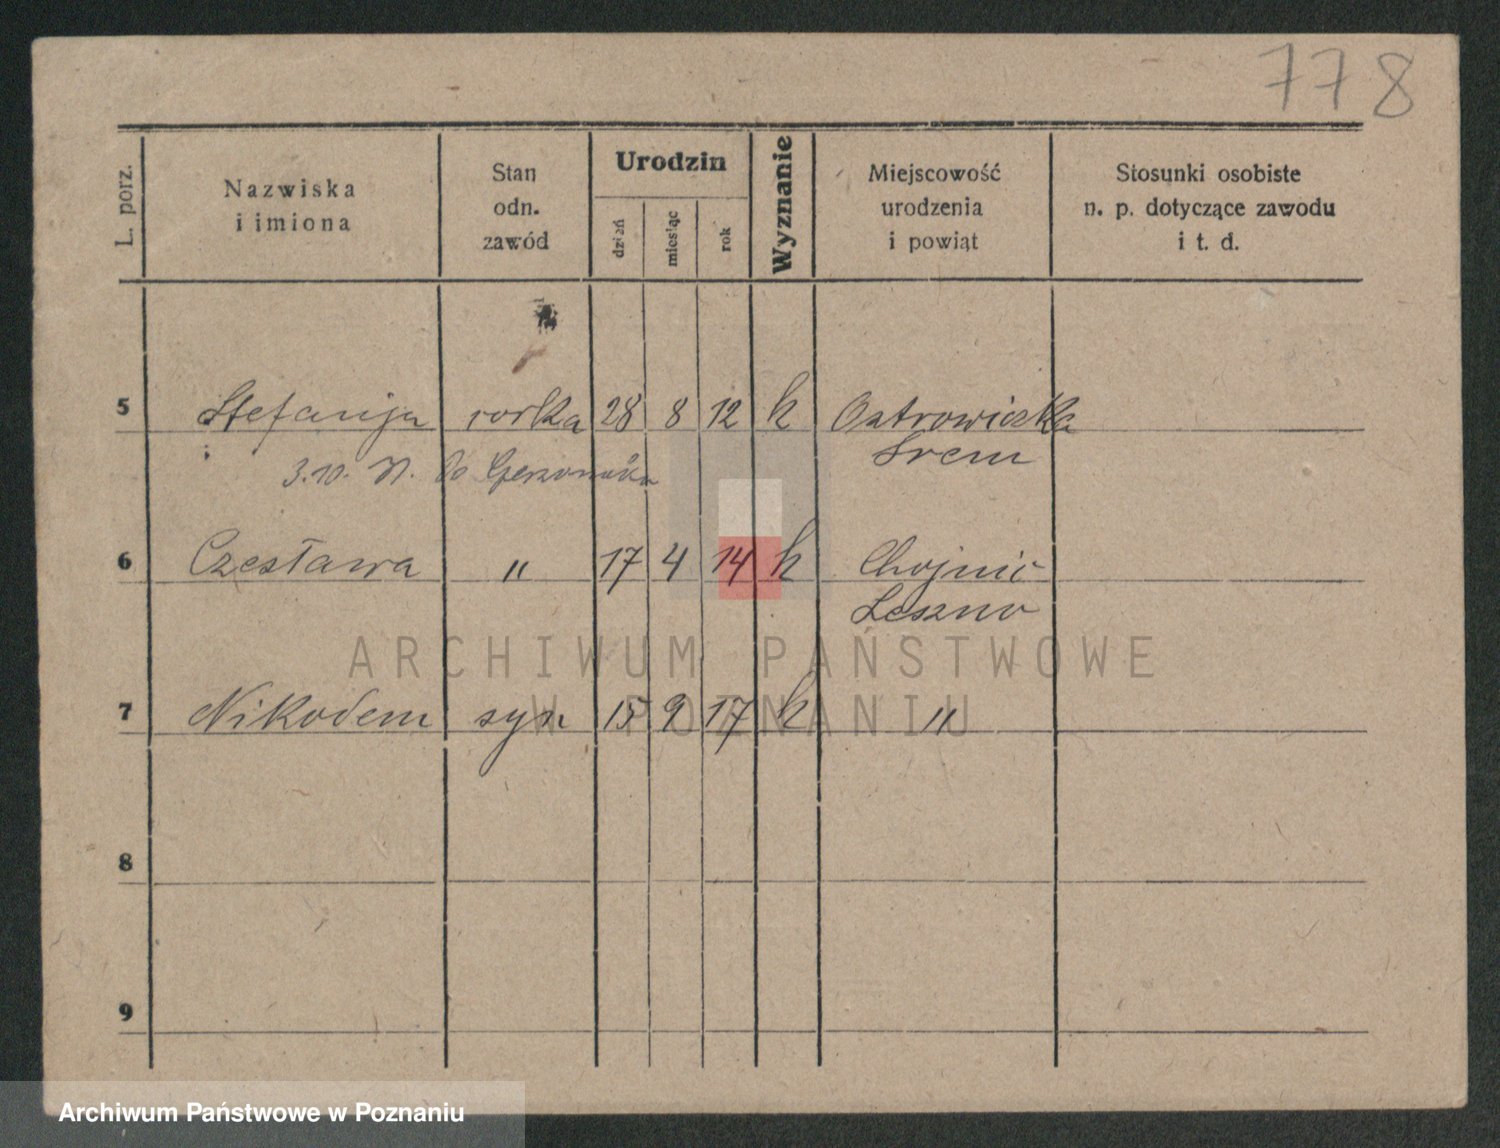 778
L. porz.
Nazwiska
i imiona
Stan
odn.
zawód
Urodzin
dzień
miesiąc
rok
Wyznanie
Miejscowość
urodzenia
i powiąt
Stosunki osobiste
n. p. dotyczące zawodu
i t. d.
5 Stefanja corka 28 8 12 k Ostrowieczka
Srem
3.10.
6 Czesława " 17 4 14 k Chojnic
Leszno
ARCHIWUM PAŃSTWOWE
W POZNANIU
7 Nikodem syn 15 9 17 k "
8
9
Archiwum Państwowe w Poznaniu